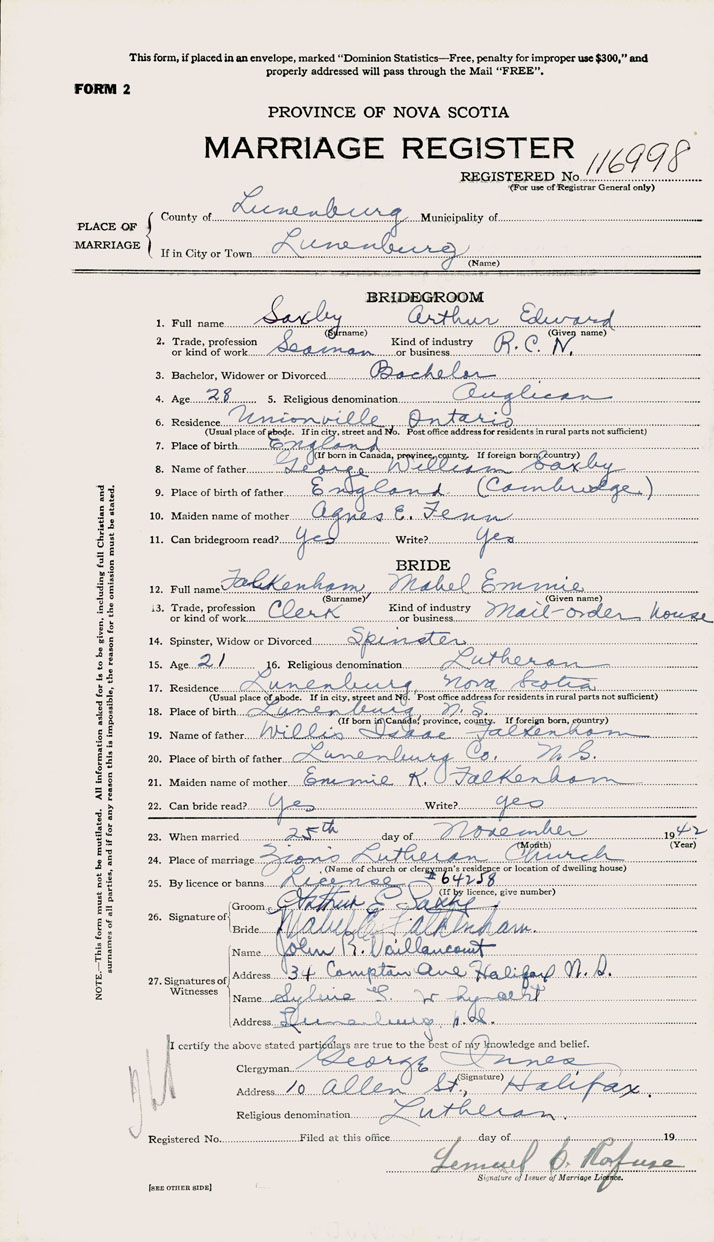 This form, if placed in an envelope, marked "Dominion Statistics—Free, penalty for improper use $300," and
properly addressed will pass through the Mail "FREE".
FORM 2
PROVINCE OF NOVA SCOTIA
MARRIAGE REGISTER
REGISTERED No. 116998
(For use of Registrar General only)
PLACE OF MARRIAGE
County of Lunenburg Municipality of
If in City or Town Lunenburg
(Name)
BRIDEGROOM
1. Full name Saxby Arthur Edward
(Surname) (Given name)
2. Trade, profession or kind of work Seaman Kind of industry or business R.C.N.
3. Bachelor, Widower or Divorced Bachelor
4. Age 28 5. Religious denomination Anglican
6. Residence Unionville, Ontario
(Usual place of abode. If in city, street and No. Post office address for residents in rural parts not sufficient)
7. Place of birth England
(If born in Canada, province, county. If foreign born, country)
8. Name of father George William Saxby
9. Place of birth of father England (Cambridge)
10. Maiden name of mother Agnes E. Fenn
11. Can bridegroom read? Yes Write? Yes
BRIDE
12. Full name Falkenham, Mabel Emmie
(Surname) (Given name)
13. Trade, profession or kind of work Clerk Kind of industry or business Mail-order house
14. Spinster, Widow or Divorced Spinster
15. Age 21 16. Religious denomination Lutheran
17. Residence Lunenburg, Nova Scotia
(Usual place of abode. If in city, street and No. Post office address for residents in rural parts not sufficient)
18. Place of birth Lunenburg, N.S.
(If born in Canada, province, county. If foreign born, country)
19. Name of father Willis Isaac Falkenham
20. Place of birth of father Lunenburg Co. N.S.
21. Maiden name of mother Emmie K. Falkenham
22. Can bride read? Yes Write? yes
23. When married 25th day of November 1942
(Month) (Year)
24. Place of marriage Zion's Lutheran Church
(Name of church or clergyman's residence or location of dwelling house)
25. By licence or banns License #64258
(If by licence, give number)
26. Signature of
Groom Arthur E Saxby
Bride Mabel E Falkenham.
27. Signatures of Witnesses
Name John R. Vaillancourt
Address 34 Compton Ave Halifax N.S.
Name Sylvia
Address Lunenburg, N.S.
I certify the above stated particulars are true to the best of my knowledge and belief.
Clergyman George Innes
(Signature)
Address 10 Allen St., Halifax.
Religious denomination Lutheran.
Registered No. Filed at this office day of 19
Lemuel C. Rafuse
Signature of Issuer of Marriage Licence.
[SEE OTHER SIDE]
NOTE.—This form must not be mutilated. All information asked for is to be given, including full Christian and
surnames of all parties, and if for any reason this is impossible, the reason for the omission must be stated.